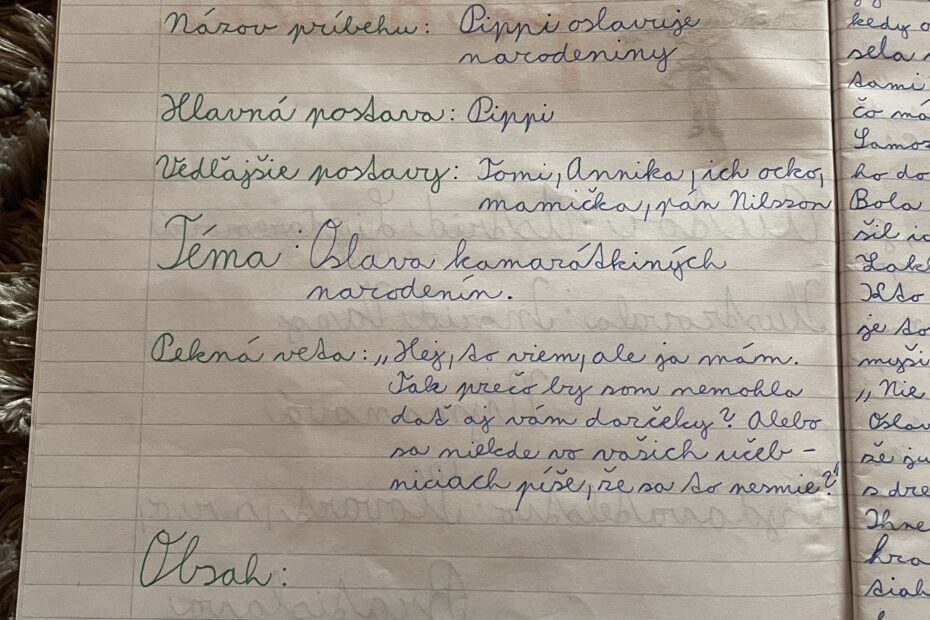 Názov príbehu: Pippi oslavuje
narodeniny
Hlavná postava: Pippi
Vedľajšie postavy: Tomi, Annika, ich ocko,
mamička, pán Nilsson
Téma: Oslava kamarátkiných
narodenín.
Pekná veta: „Hej, to viem, ale ja mám.
Tak prečo by som nemohla
dať aj vám darčeky? Alebo
sa niekde vo vašich učeb-
niciach píše, že sa to nesmie?"
Obsah:
kedy
sela
tami
čo má
ho do
Bola
šil
je to
„Nie
Oslav
že
s dre
hra
siah